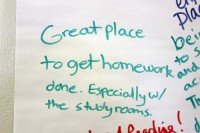 Great place
to get homework
done. Especially w/
the study rooms.
being
to s
and